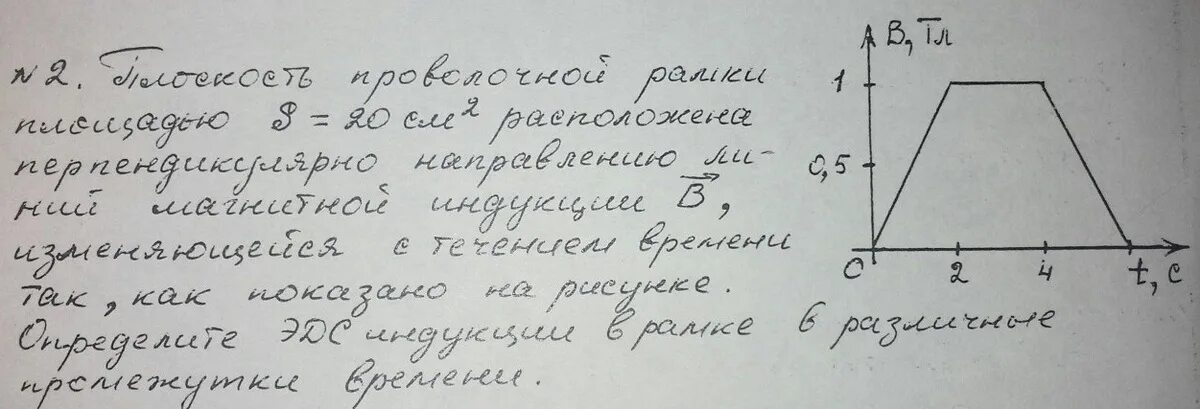 №2. Плоскость проволочной рамки
площадью S = 20 см² расположена
перпендикулярно направлению ли-
ний магнитной индукции B⃗,
изменяющейся с течением времени
так, как показано на рисунке.
Определите ЭДС индукции в рамке в различные
промежутки времени.
B, Тл
1
0,5
0
2
4
t, с